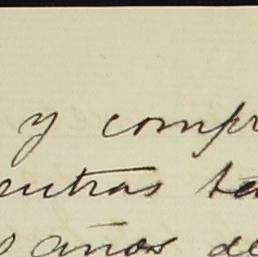 y compr
entras ta
s años de